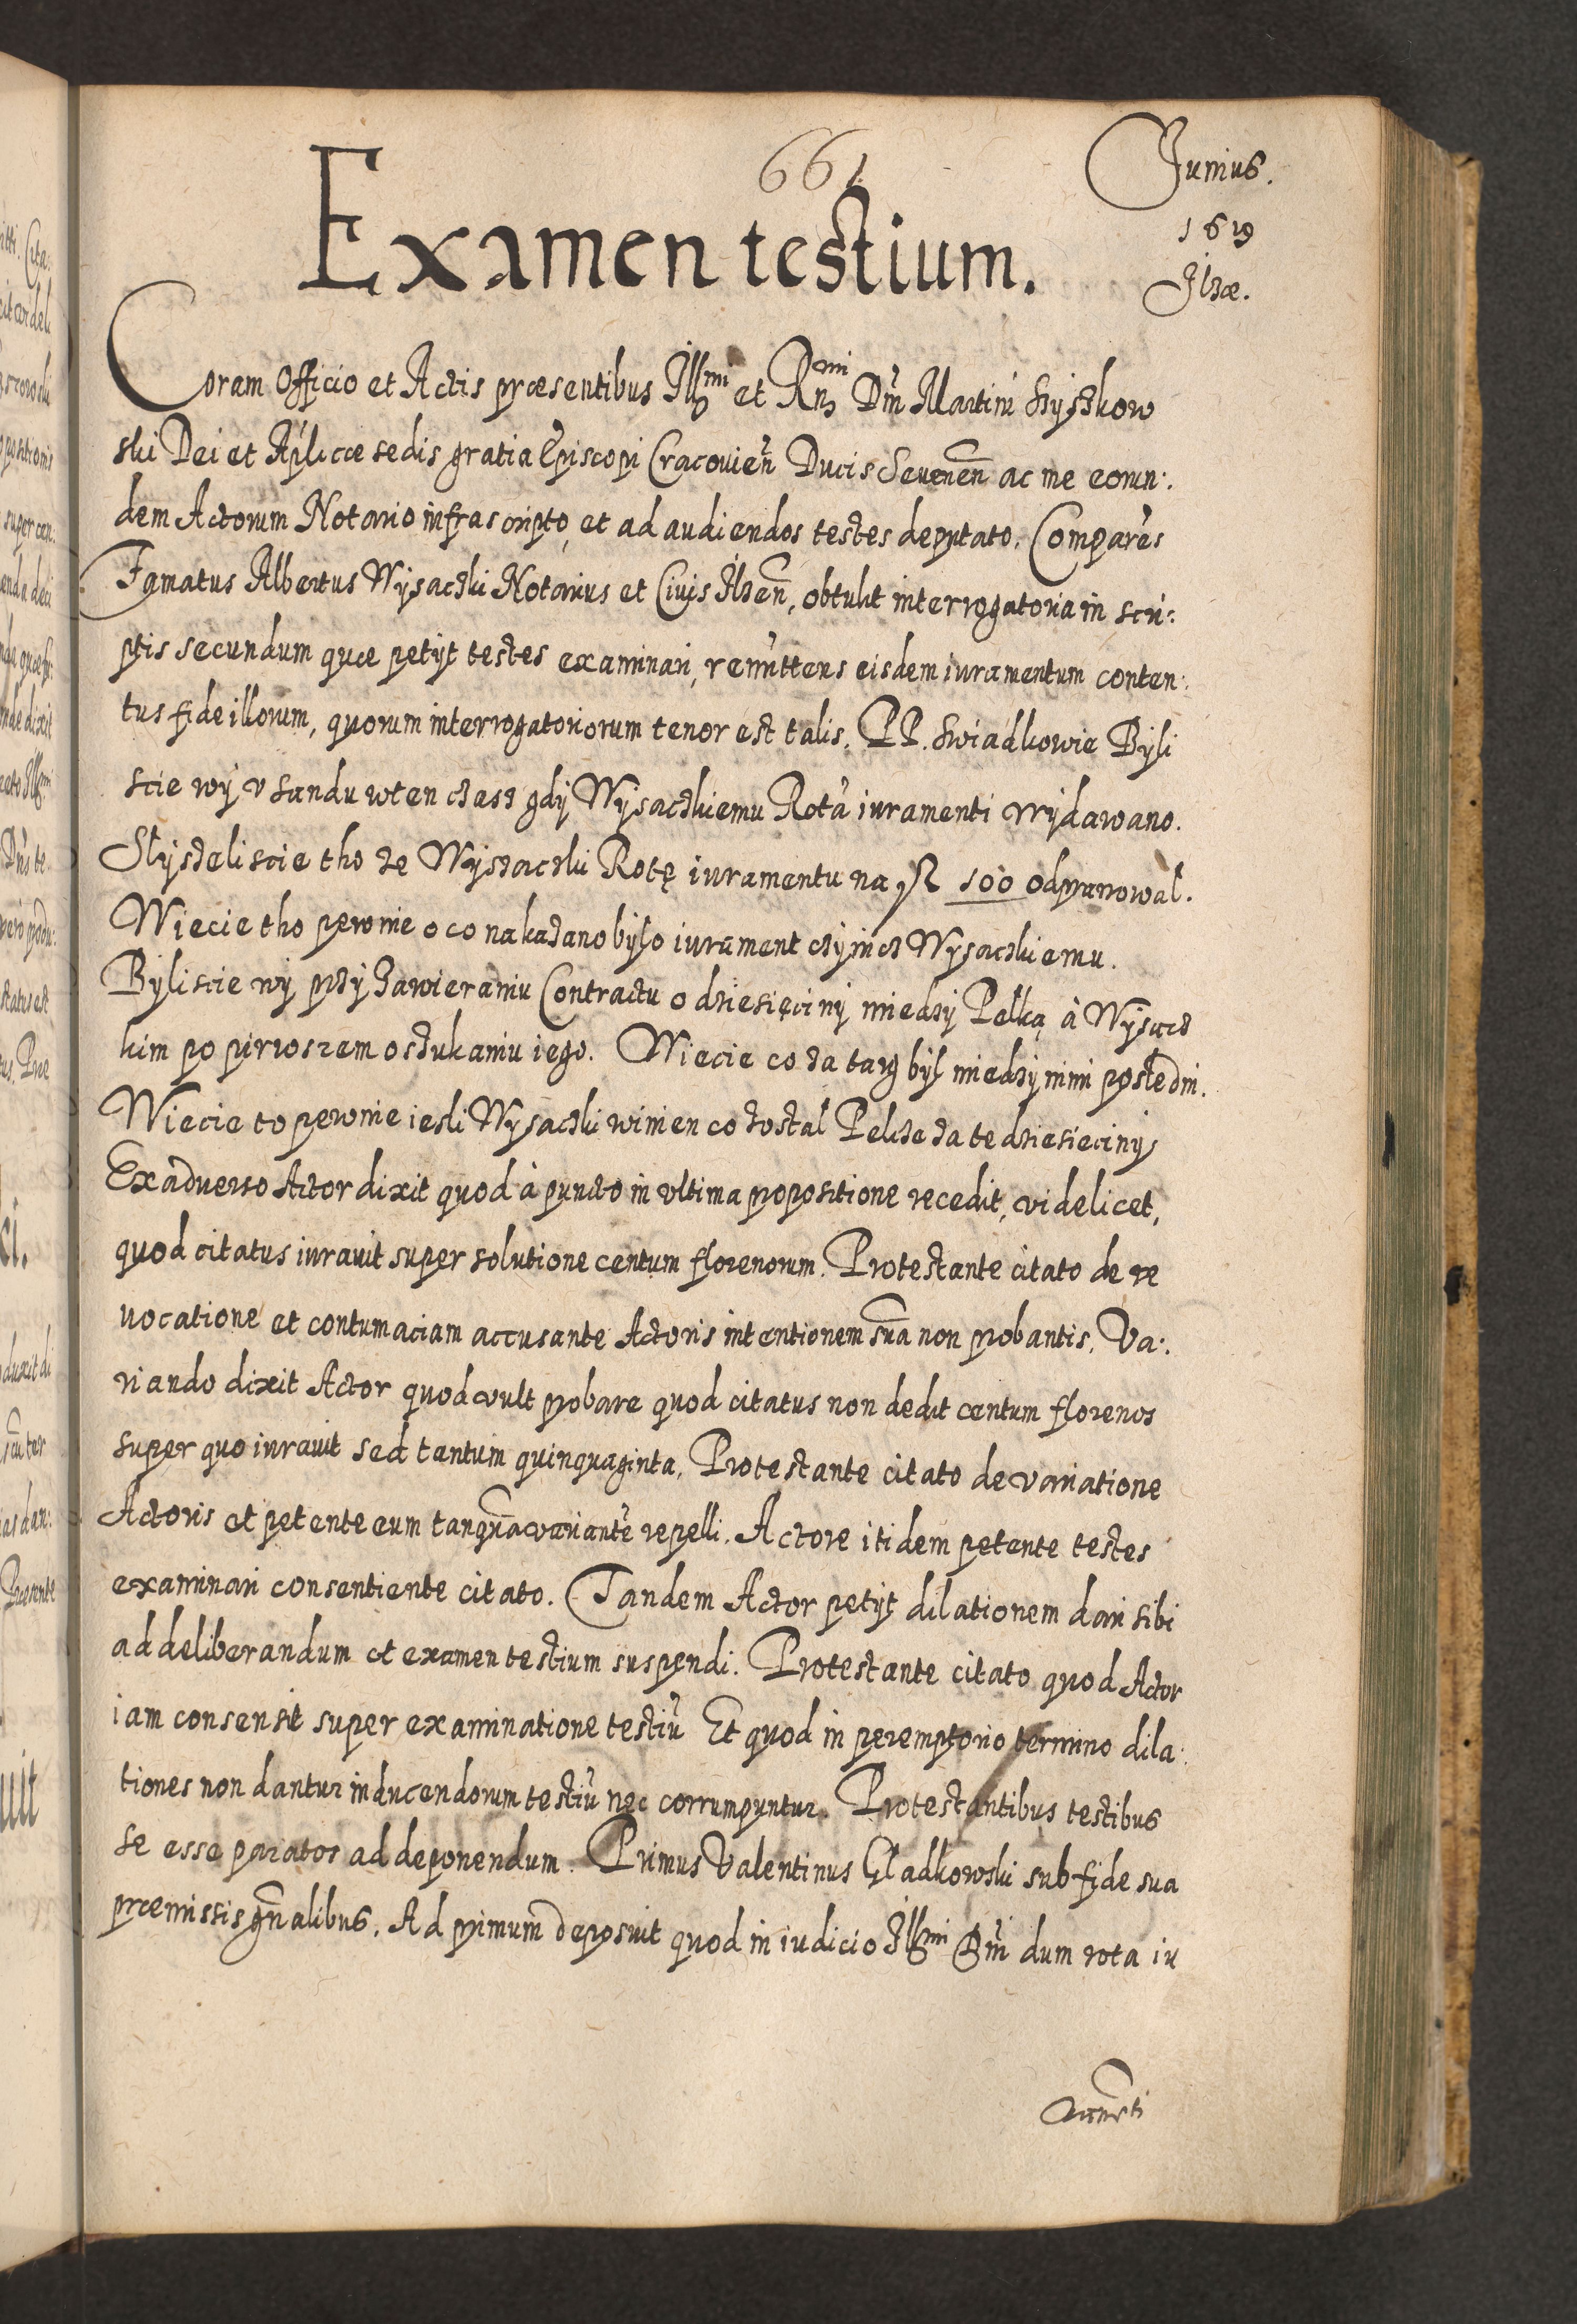 661
Junius.
1619
Ilzæ.
Examen testium.
Coram Officio et Actis præsentibus Illmi et Rnmi Dni Martini Szyszkow
ski Dei et Aplicæ sedis gratia Episcopi Cracovien Ducis Severien ac me eorun:
dem Actorum Notario infrascripto, et ad audiendos testes deputato. Comparens
Famatus Albertus Wysaczki Notarius et Civis Ilzen, obtulit interrogatoria in scri:
ptis secundum quæ petyt testes examinari, remittens eisdem iuramentum conten:
tus fide illorum, quorum interrogatoriorum tenor est talis. PP. Swiadkowie Byli
scie wy v sandu wten czasz gdy Wysaczkiemu Rota iuramenti wydawano.
Slyszeliscie tho ze Wyszaczki Rotę iuramentu na 100 odprawowal.
Wiecie tho pewnie o co nakazano bylo iurament czynicz Wysaczkiemu.
Byliscie wy przy Zawieraniu Contractu o dziesięciny miedzy Pelką à Wysacz
kim po pirwszem oszukaniu iego. Wiecie co za targ byl miedzy nimi posledni.
Wiecie to pewnie iesli Wysaczki winien co zostal Pelcze za te dziesieciny
Ex adverso Actor dixit quod à puncto in ultima propositione recedit, videlicet,
quod citatus iuravit super solutione centum florenorum. Protestante citato de re
vocatione et contumaciam accusante Actoris intentionem sua non probantis. Va:
riando dixit Actor quod vult probare quod citatus non dedit centum florenos
super quo iuravit sed tantum quinquaginta. Protestante citato de variatione
Actoris et petente eum tanqua variante repelli. Actore itidem petente testes
examinari consentiente citato. Tandem Actor petyt dilationem dari sibi
ad deliberandum et examen testium suspendi. Protestante citato quod Actor
iam consensit super examinatione testiu Et quod in peremptorio termino dila:
tiones non dantur inducendorum testiu nec corrumpuntur. Protestantibus testibus
se esse paratos ad deponendum. Primus Valentinus Gladkowski sub fide sua
præmissis gnalibus. Ad primum deposuit quod in iudicio Illmi Dni dum rota iu